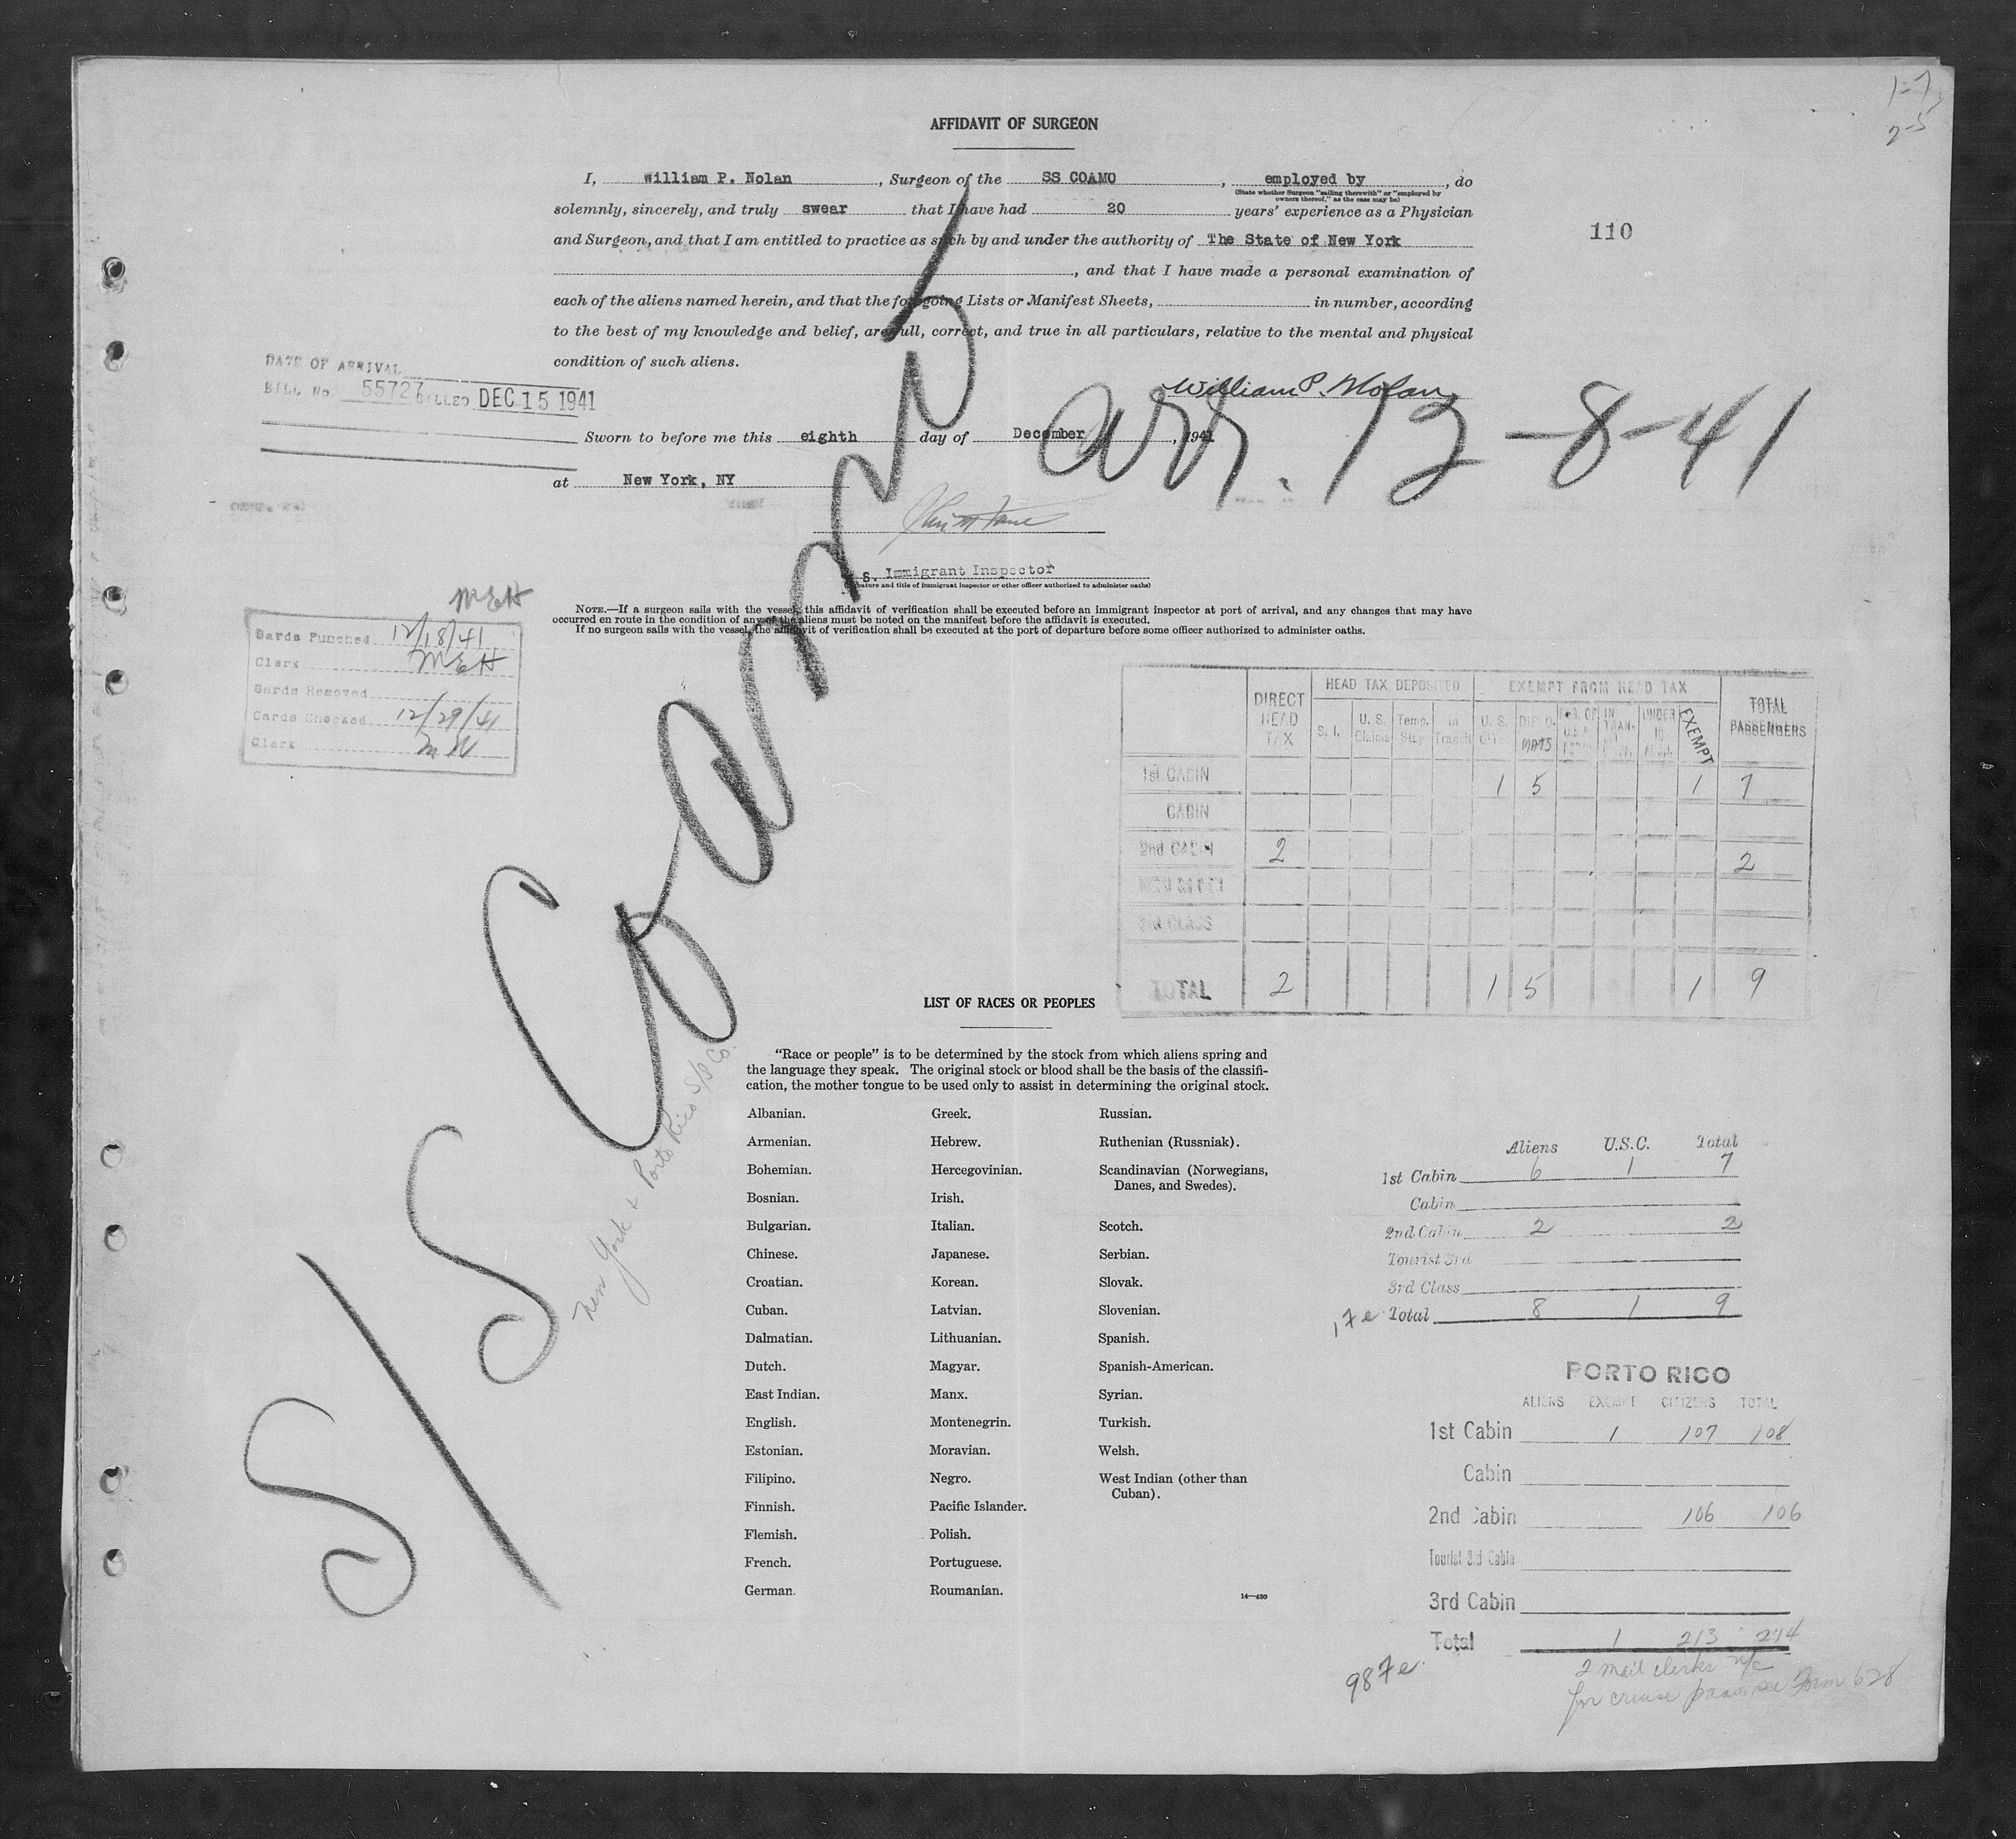 1-7
2-5
AFFIDAVIT OF SURGEON
I, William P. Nolan, Surgeon of the SS COAMO, employed by, do
(State whether Surgeon "sailing therewith" or "employed by owners thereof," as the case may be)
solemnly, sincerely, and truly swear that I have had 20 years' experience as a Physician
and Surgeon, and that I am entitled to practice as such by and under the authority of The State of New York
110
, and that I have made a personal examination of
each of the aliens named herein, and that the foregoing Lists or Manifest Sheets, in number, according
to the best of my knowledge and belief, are full, correct, and true in all particulars, relative to the mental and physical
condition of such aliens.
DATE OF ARRIVAL
BILL No. 55727 BILLED DEC 15 1941
William P. Nolan
arr. 12-8-41
Sworn to before me this eighth day of December, 1941
at New York, NY
S. Immigrant Inspector
(Signature and title of immigrant inspector or other officer authorized to administer oaths)
NOTE.—If a surgeon sails with the vessel, this affidavit of verification shall be executed before an immigrant inspector at port of arrival, and any changes that may have
occurred en route in the condition of any of the aliens must be noted on the manifest before the affidavit is executed.
If no surgeon sails with the vessel, the affidavit of verification shall be executed at the port of departure before some officer authorized to administer oaths.
MEH
Cards Punched 12/18/41
Clerk MEH
Cards Removed
Cards Checked 12/29/41
Clerk
S/S Coamo
New York & Porto Rico S/S Co.
DIRECT HEAD TAX
HEAD TAX DEPOSITED
EXEMPT FROM HEAD TAX
TOTAL PASSENGERS
S. I. U. S. Claims Temp. Stay In Transit U. S. Cit. DIPLOMATS UNDER 16 EXEMPT
1st CABIN 1 5 1 7
CABIN
2nd CABIN 2 2
3rd CLASS
TOTAL 2 1 5 1 9
LIST OF RACES OR PEOPLES
"Race or people" is to be determined by the stock from which aliens spring and
the language they speak. The original stock or blood shall be the basis of the classifi-
cation, the mother tongue to be used only to assist in determining the original stock.
Albanian.
Armenian.
Bohemian.
Bosnian.
Bulgarian.
Chinese.
Croatian.
Cuban.
Dalmatian.
Dutch.
East Indian.
English.
Estonian.
Filipino.
Finnish.
Flemish.
French.
German.
Greek.
Hebrew.
Hercegovinian.
Irish.
Italian.
Japanese.
Korean.
Latvian.
Lithuanian.
Magyar.
Manx.
Montenegrin.
Moravian.
Negro.
Pacific Islander.
Polish.
Portuguese.
Roumanian.
Russian.
Ruthenian (Russniak).
Scandinavian (Norwegians,
Danes, and Swedes).
Scotch.
Serbian.
Slovak.
Slovenian.
Spanish.
Spanish-American.
Syrian.
Turkish.
Welsh.
West Indian (other than
Cuban).
14—430
Aliens U.S.C. Total
1st Cabin 6 1 7
Cabin
2nd Cabin 2 2
Tourist 3rd
3rd Class
Total 8 1 9
PORTO RICO
ALIENS EXEMPT CITIZENS TOTAL
1st Cabin 1 107 108
Cabin
2nd Cabin 106 106
Tourist 3rd Cabin
3rd Cabin
Total 1 213 214
2 mail clerks
for cruise Form 628